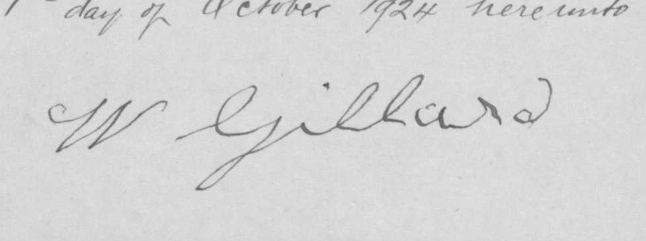 day of October 1924 hereunto
W Gillard